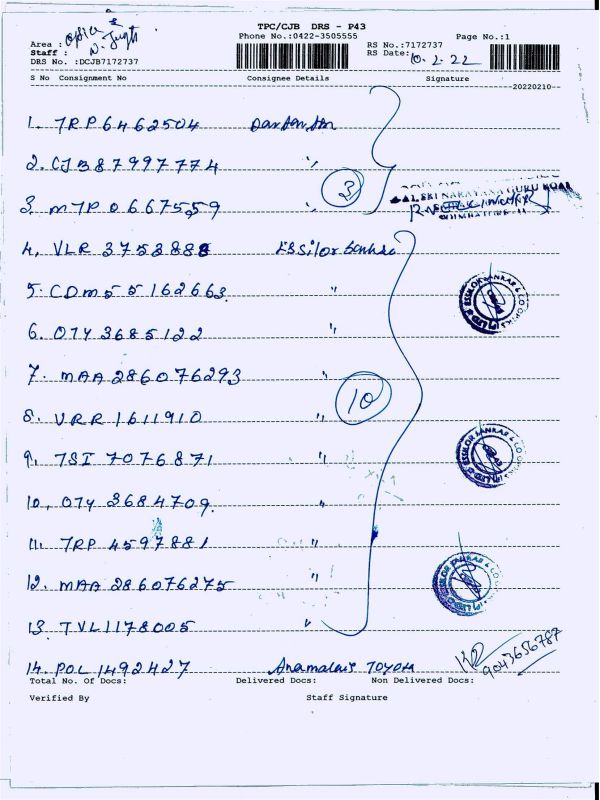 TPC/CJB DRS - P43
Phone No.:0422-3505555
Page No.:1
Area :
RS No.:7172737
Staff :
RS Date: 10.2.22
DRS No. :DCJB7172737
S No Consignment No Consignee Details Signature
20220210
1. TRP6462504
2. CJB87997774 "
3. MTP0667559 "
3
SRI NARAYANA GURU ROAD
COIMBATORE - 11
4. VLR 3753888 Essilor Sankar
5. CDM55162663. "
6. OTY 3685122 "
7. MAA 286076293 "
8. VRR 1611910 "
9. TSI 7076871 "
10. OTY 3684709. "
11. TRP 4597881 "
12. MAA 286076275 "
13. TVL1178005 "
10
ESSILOR SANKAR & CO
ESSILOR SANKAR & CO
ESSILOR SANKAR & CO
14. POL 1492427 Anamalais TOYOTA
9043656787
Total No. Of Docs: Delivered Docs: Non Delivered Docs:
Verified By Staff Signature